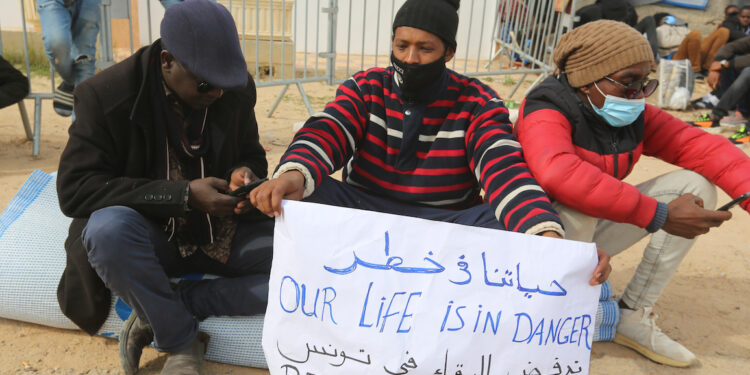 حياتنا في خطر
OUR LiFE IS IN DANGER
نرفض البقاء في تونس